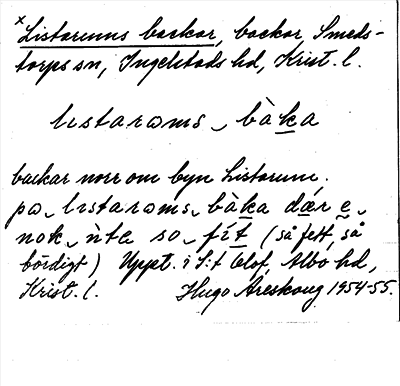 x Listarums backar, backar Smeds-
torps sn, Ingelstads hd, Krist. l.
listarəms bàka
backar norr om byn Listarum.
pə listarəms bàka dær e
nok ìnte so fít (så fett, så
bördigt) Uppt. i S:t Olof, Albo hd,
Krist. l. Hugo Areskoug 1954-55.